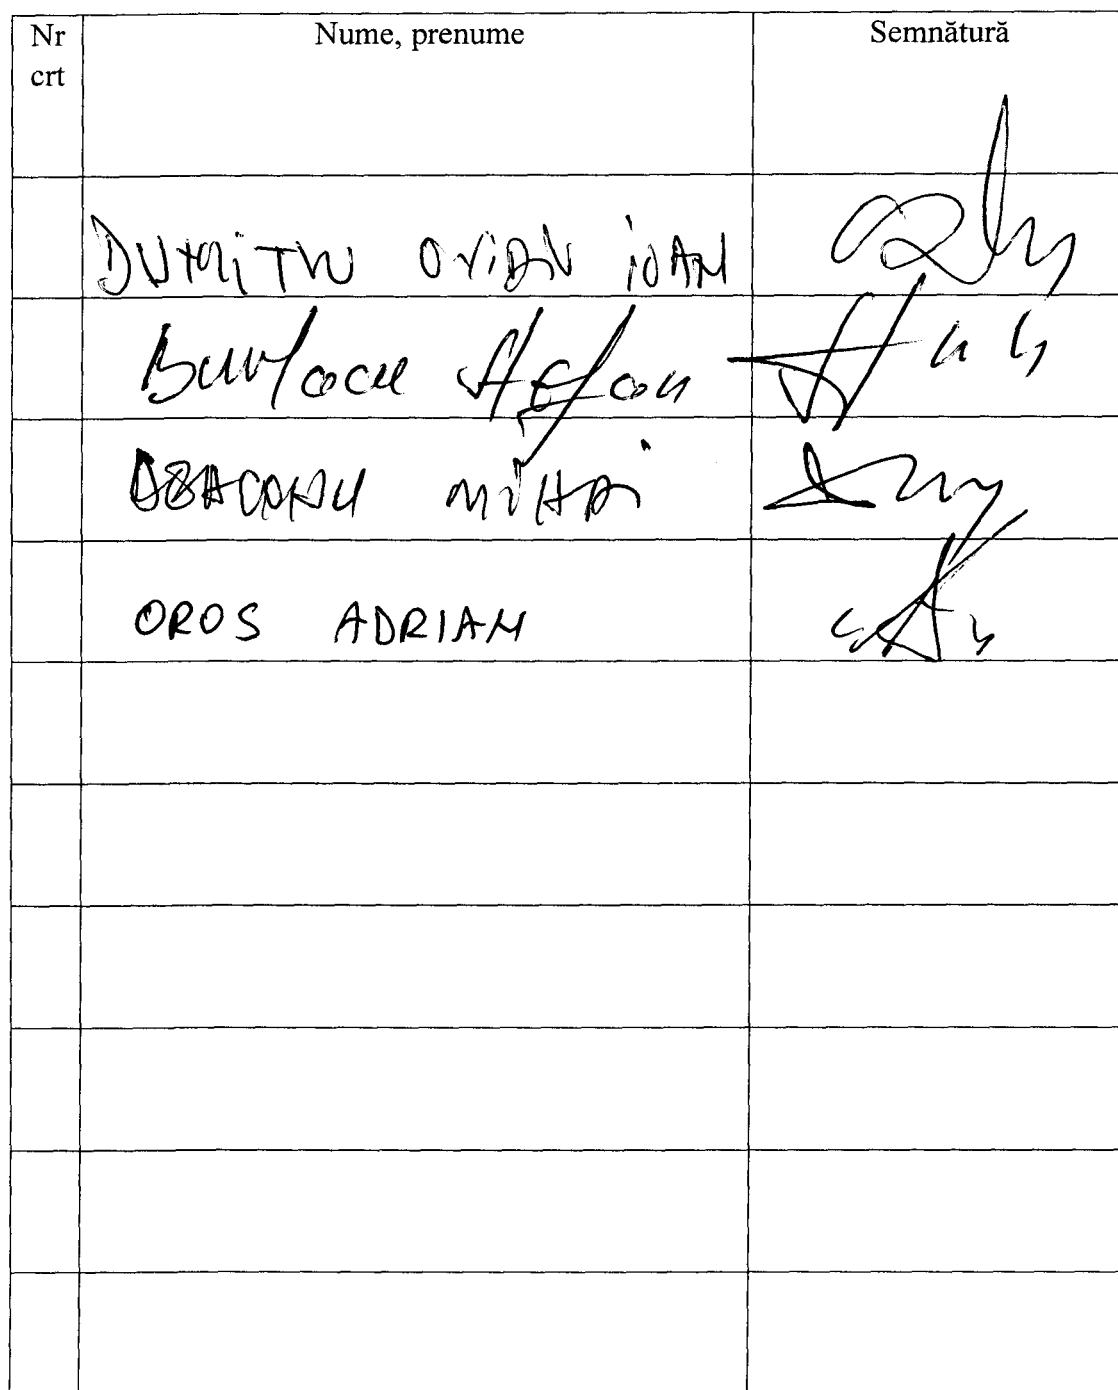 Nr crt Nume, prenume Semnătură
DUMITRU OVIDIU IOAN
Burlacu Ștefan
DIACONU MIHAI
OROS ADRIAN